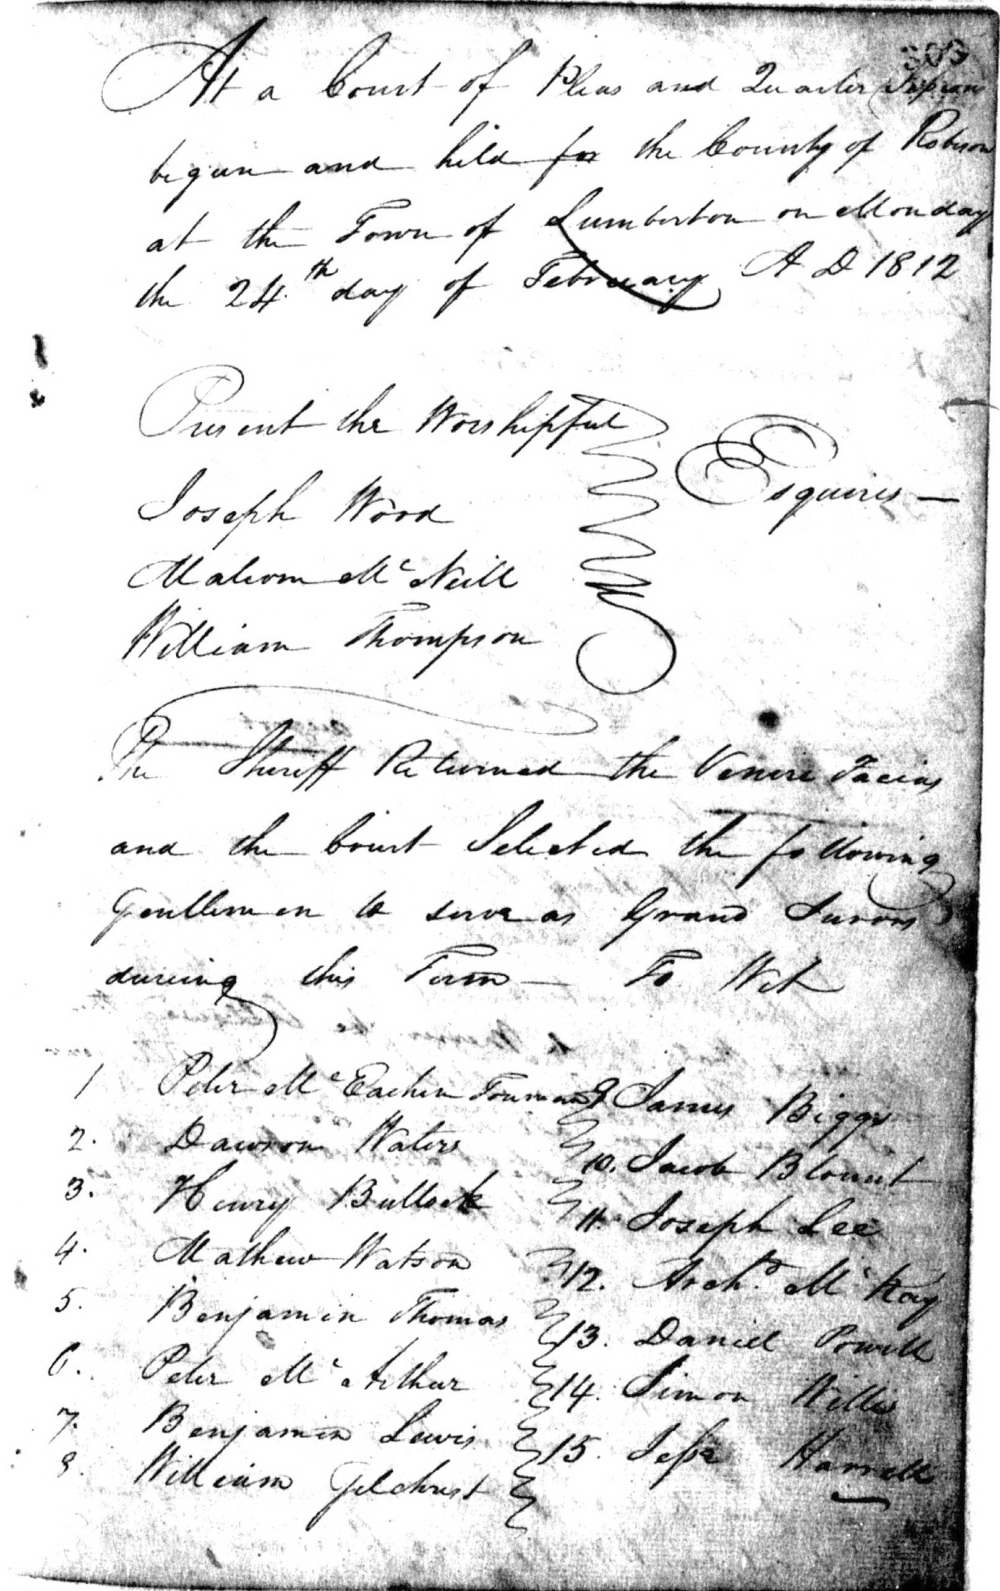 303
At a Court of Pleas and Quarter Sessions
begun and held for the County of Robeson
at the Town of Lumberton on Monday
the 24th day of February A D 1812
Present the Worshipful
Joseph Wood
Malcom McNeill
William Thompson
Esquires —
The Sheriff Returned the Venire Facias
and the Court Selected the following
Gentlemen to serve as Grand Jurors
during this Term — To Wit
1 Peter McEachin Foreman
2. Dawson Waters
3. Henry Bullock
4. Mathew Watson
5. Benjamin Thomas
6. Peter McArthur
7. Benjamin Lewis
8. William Gilchrist
9 James Biggs
10. Jacob Blount
11. Joseph Lee
12. Archd McKay
13. Daniel Powell
14. Simon Willis
15. Jesse Harrell